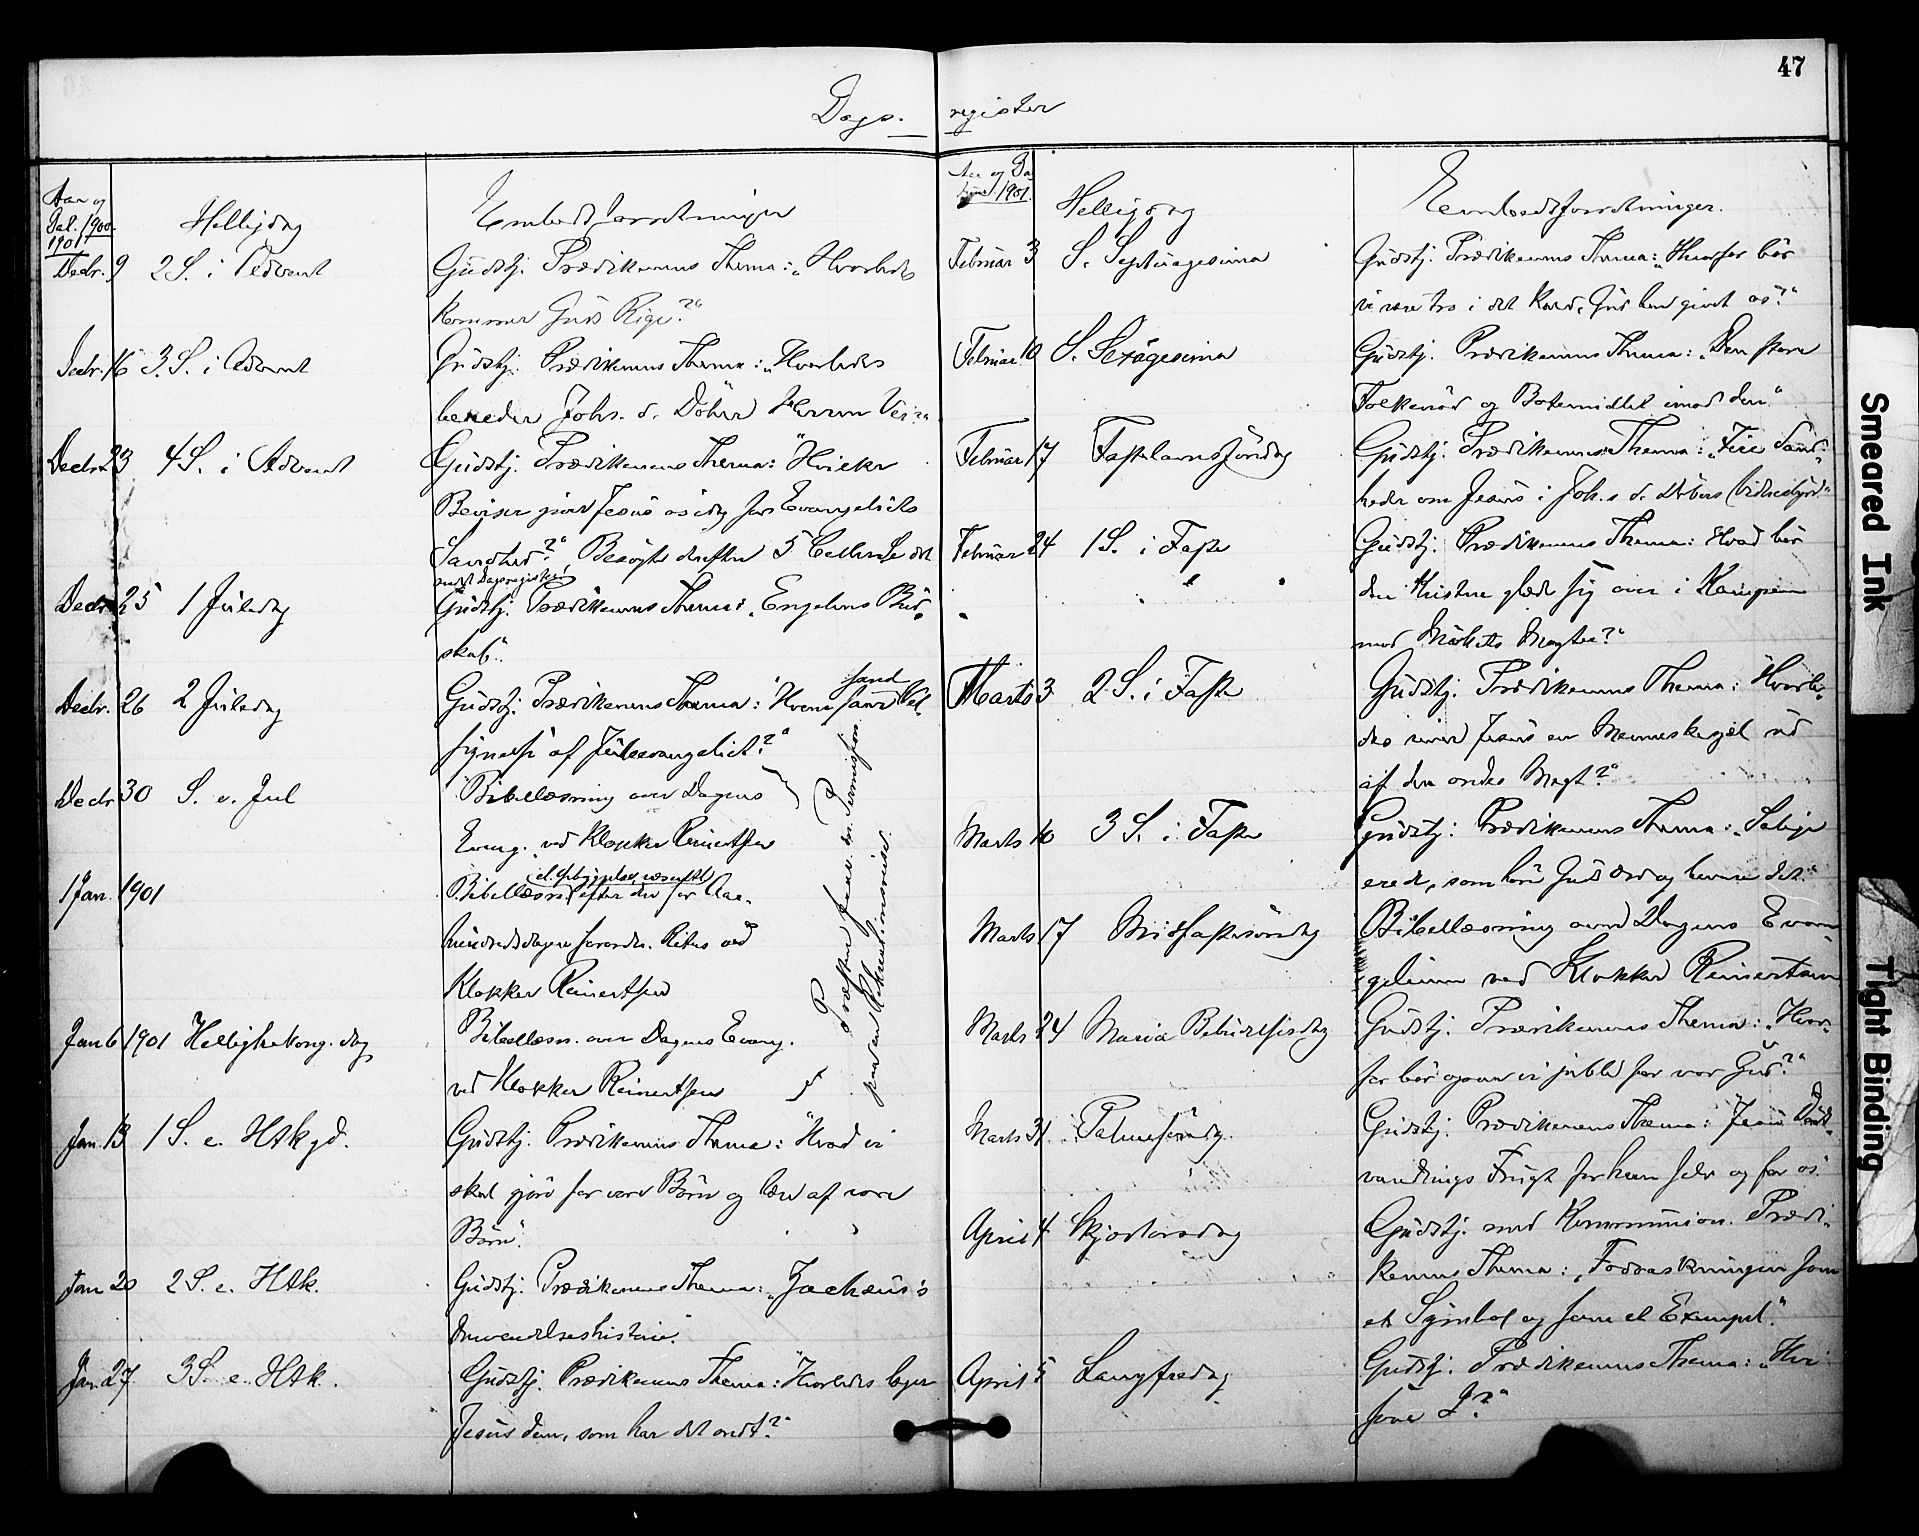 47
Dags- register
Aar og
Dat. 1900-
1901
Helligdag
Embedsforretninger
Decbr. 9 2 S. i Advent Gudstj. Prædikenens Thema: "Hvorledes
kommer Guds Rige?"
Decbr. 16 3. S. i Advent Gudstj. Prædikenens Thema: "Hvorledes
bereder Johs. d. Döber Herren Vei?"
Decbr. 23 4 S. i Advent Gudstj. Prædikenens Thema: "Hvilke
Beviser giver Jesus os idag for Evangeliets
Sandhed?" Besøgte derefter 5
Decbr. 25 1 Juledag Gudstj. Prædikenens Thema: "Engelens Bud-
skab".
Decbr. 26 2 Juledag Gudstj. Prædikenens Thema: "Hvem sand Vel-
signelse af Juleevangeliet?"
Decbr. 30 S. e. Jul Bibellæsning over Dagens
Evang. ved Klokker Reinertsen
1 Jan. 1901 Bibellæsn. efter den for Aar-
hundredsdagen forordn. Ritus ved
Klokker Reinertsen
Jan 6 1901 Helligtrekong. dag Bibellæsn. over Dagens Evang.
ved Klokker Reinertsen
Jan. 13 1 S. e. Htkgd. Gudstj. Prædikenens Thema: "Hvad vi
skal gjöre for vore Börn og lære af vore
Börn".
Jan 20 2 S. e. Htk. Gudstj. Prædikenens Thema: "Zachæus's
Omvendelseshistorie."
Jan 27 3 S. e. Htk. Gudstj. Prædikenens Thema: "Hvorledes læger
Jesus dem, som har det ondt?"
Aar og Da-
tum 1901.
Helligdag
Embedsforretninger.
Februar 3 S. Septuagesima Gudstj. Prædikenens Thema: "Hvorfor bör
vi være tro i det Kald, Gud har givet os?"
Februar 10 S. Sexagesima Gudstj. Prædikenens Thema: "Den store
Folkenöd og Botemidlet imod den."
Februar 17 Fastelavnssöndag Gudstj. Prædikenens Thema: "Fire Sand-
heder om Jesus i Johs. d. Döbers Vidnesbyrd"
Februar 24 1 S. i Faste Gudstj. Prædikenens Thema: Hvad bör
den Kristne glæde sig over i Kampen
mod Mörkets Magter?"
Marts 3 2 S. i Faste Gudstj. Prædikenens Thema: "Hvorle-
des river Jesus en Menneskesjel ud
af den ondes Magt?"
Marts 10 3 S. i Faste Gudstj. Prædikenens Thema: "Salige
ere de, som höre Guds Ord og bevare det."
Marts 17 Midfastesöndag Bibellæsning over Dagens Evan-
gelium ved Klokker Reinertsen
Marts 24 Maria Bebudelsesdag Gudstj. Prædikenens Thema: "Hvor-
for bör ogsaa vi juble for vor Gud?"
Marts 31 Palmesöndag Gudstj. Prædikenens Thema: Jesu Döds-
vandrings Frugt for ham selv og for os.
April 4 Skjærtorsdag Gudstj. med Kommunion. Prædi-
kenens Thema: "Fodvaskningen som
et Symbol og som et Exempel."
April 5 Langfredag Gudstj. Prædikenens Thema: "Hvi
sove I?"
Smeared Ink
Tight Binding